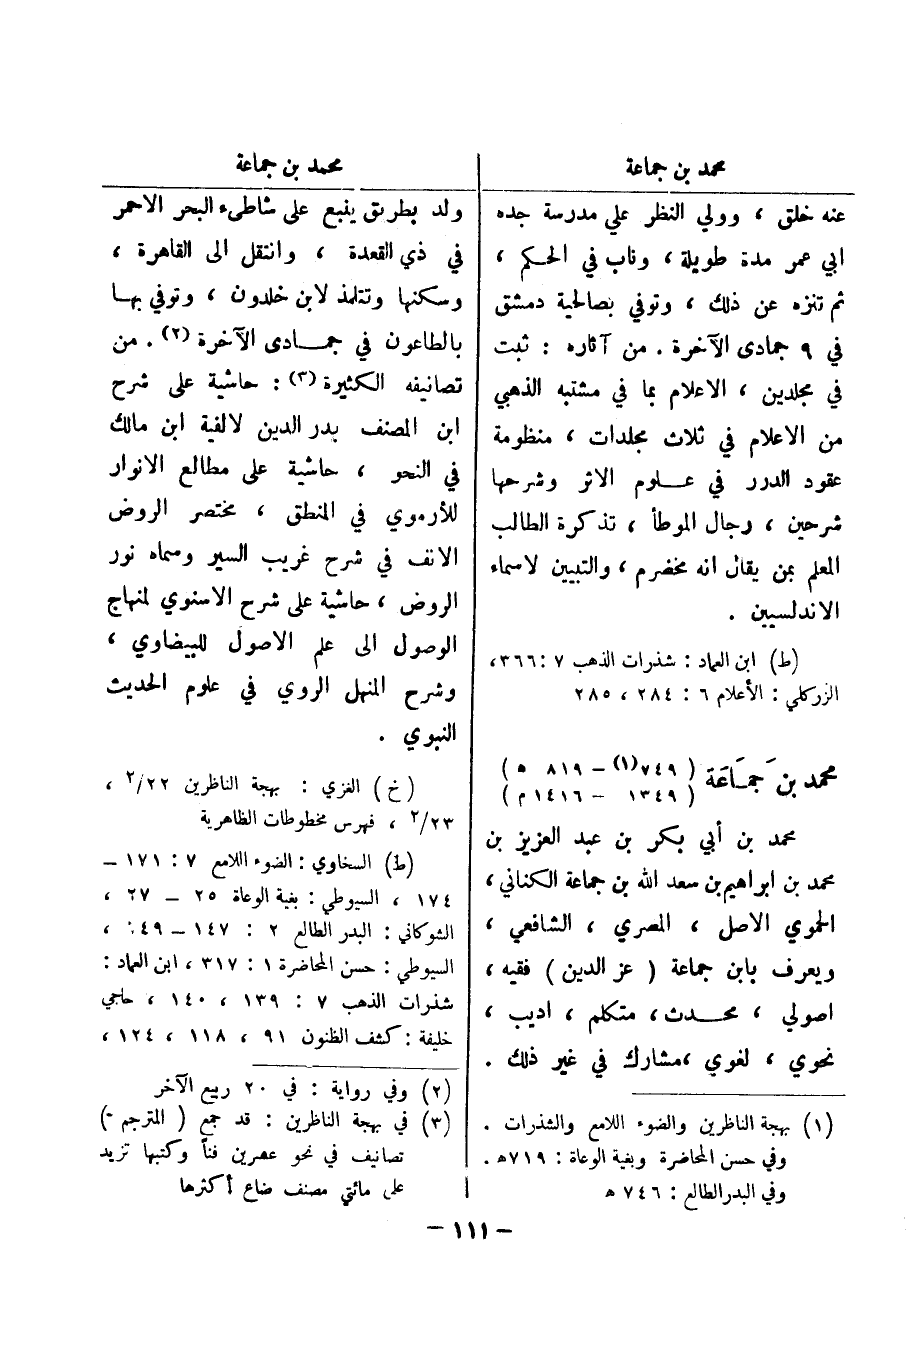 محمد بن جماعة
عنه خلق ، وولي النظر علي مدرسة جده
ابي عمر مدة طويلة ، وناب في الحكم ،
ثم تنزه عن ذلك ، وتوفي بصالحية دمشق
في ٩ جمادى الآخرة . من آثاره : ثبت
في مجلدين ، الاعلام بما في مشتبه الذهبي
من الاعلام في ثلاث مجلدات ، منظومة
عقود الدرر في علوم الاثر وشرحها
شرحين ، رجال الموطأ ، تذكرة الطالب
المعلم بمن يقال انه مخضرم ، والتبيين لاسماء
الاندلسيين .
(ط) ابن العماد : شذرات الذهب ٧ : ٣٦٦،
الزركلي : الأعلام ٦ : ٢٨٤ ، ٢٨٥
محمد بن جمَاعَة ( ٧٤٩(١) – ٨١٩ ه )
( ١٣٤٩ – ١٤١٦ م )
محمد بن أبي بكر بن عبد العزيز بن
محمد بن ابراهيم بن سعد الله بن جماعة الكناني ،
الحموي الاصل ، المصري ، الشافعي ،
ويعرف بابن جماعة ( عز الدين ) فقيه ،
اصولي ، محدث ، متكلم ، اديب ،
نحوي ، لغوي ،مشارك في غير ذلك .
(١) بهجة الناظرين والضوء اللامع والشذرات .
وفي حسن المحاضرة وبغية الوعاة : ٧١٩ه .
وفي البدر الطالع : ٧٤٦ ه
محمد بن جماعة
ولد بطريق ينبع على شاطىء البحر الاحمر
في ذي القعدة ، وانتقل الى القاهرة ،
وسكنها وتتلمذ لابن خلدون ، وتوفي بها
بالطاعون في جمادى الآخرة (٢) . من
تصانيفه الكثيرة (٣) : حاشية على شرح
ابن المصنف بدر الدين لالفية ابن مالك
في النحو ، حاشية على مطالع الانوار
للأرموي في المنطق ، مختصر الروض
الانف في شرح غريب السير وسماه نور
الروض ، حاشية على شرح الاسنوي لمنهاج
الوصول الى علم الاصول للبيضاوي ،
وشرح المنهل الروي في علوم الحديث
النبوي .
(خ) الغزي : بهجة الناظرين ٢٢/٢ ،
٢/٢٣ ، فهرس مخطوطات الظاهرية
(ط) السخاوي : الضوء اللامع ٧ : ١٧١ –
١٧٤ ، السيوطي : بغية الوعاة ٢٥ – ٢٧ ،
الشوكاني : البدر الطالع ٢ : ١٤٧ – ١٤٩ ،
السيوطي : حسن المحاضرة ١ : ٣١٧ ، ابن العماد :
شذرات الذهب ٧ : ١٣٩ ، ١٤٠ ، حاجي
خليفة : كشف الظنون ٩١ ، ١١٨ ، ١٢٤ ،
(٢) وفي رواية : في ٢٠ ربيع الآخر
(٣) في بهجة الناظرين : قد جمع ( المترجم )
تصانيف في نحو عشرين فناً وكتبها تزيد
على مائتي مصنف ضاع أكثرها
– ١١١ –